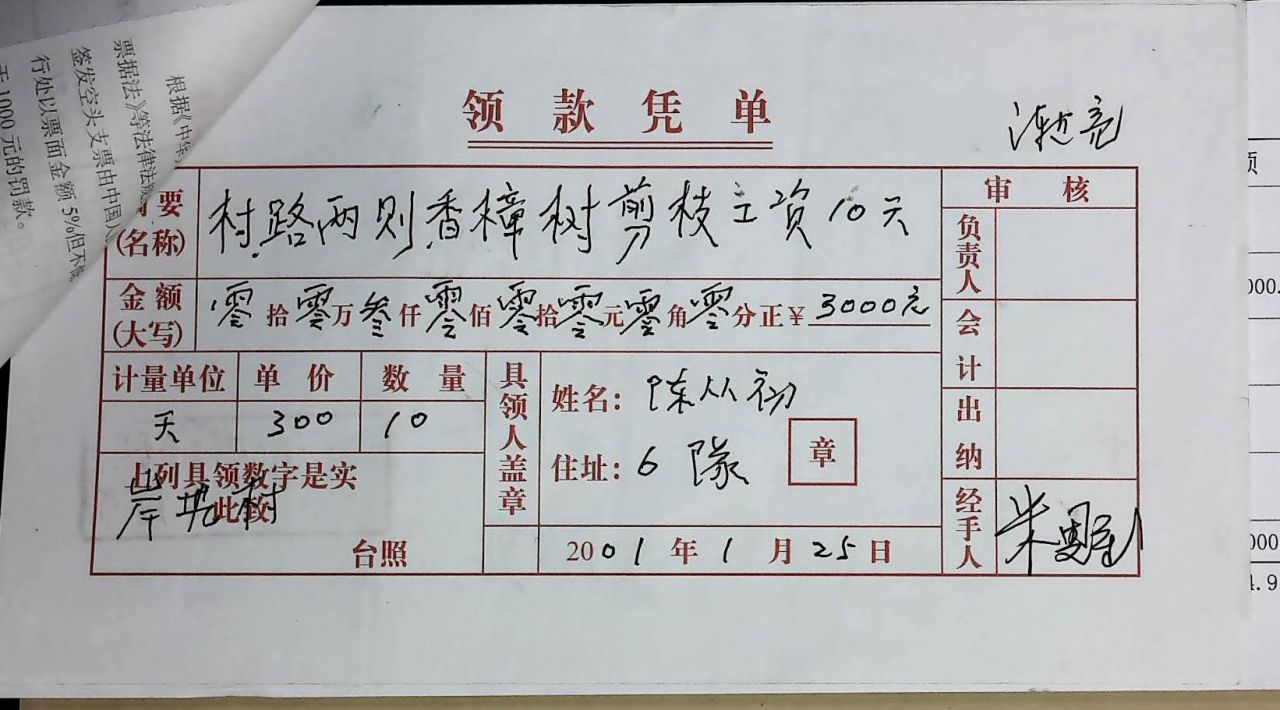 根据《中华
票据法》等法律法规
签发空头支票由中国
行处以票面金额5%但不低
于1000元的罚款。
领款凭单
审核
要
(名称)
村路两则香樟树剪枝工资10天
金额
(大写)
零拾零万叁仟零佰零拾零元零角零分正¥3000元
计量单位 单价 数量
天 300 10
上列具领数字是实
此致
岸 村
台照
具领人盖章
姓名: 陈从初
住址: 6 隊
章
2001年1月25日
负责人
会计
出纳
经手人
朱
000.
000
4.9